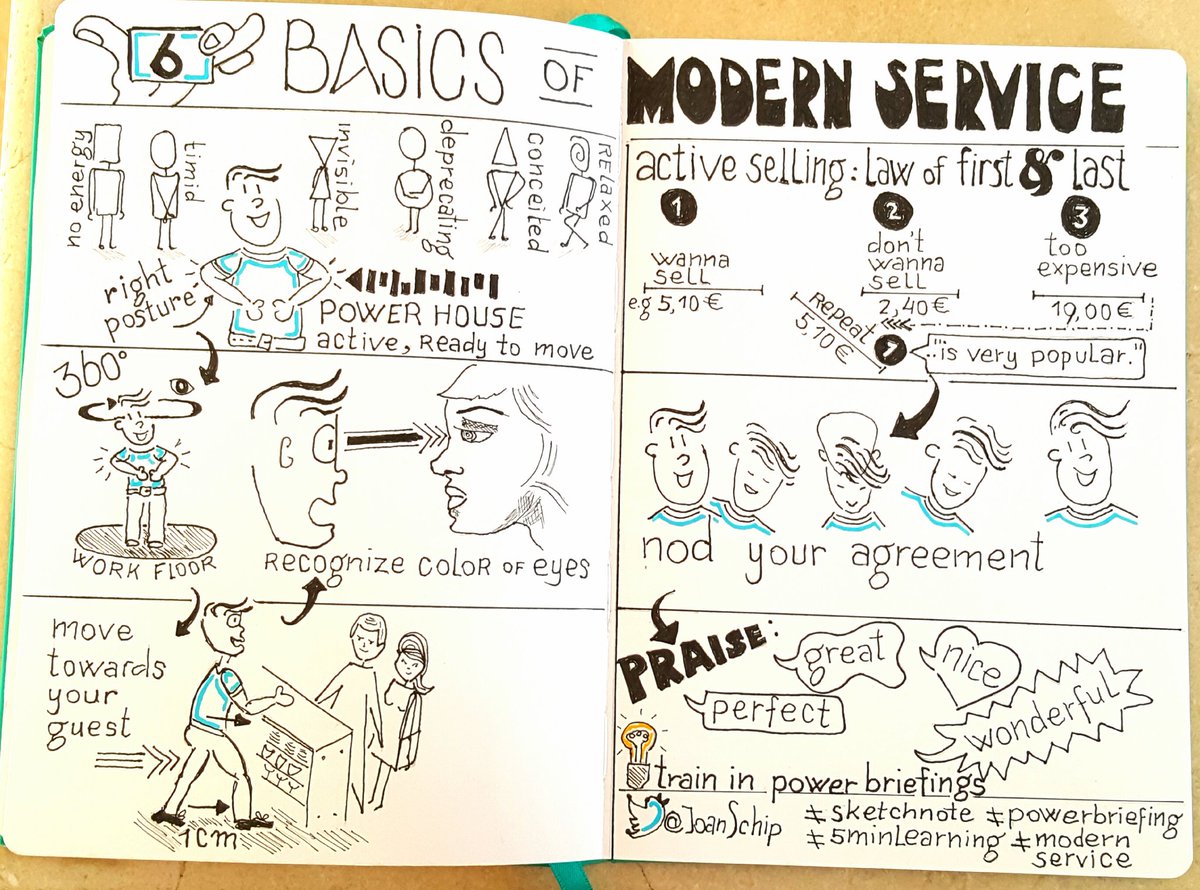 6 BASICS OF
no energy
timid
invisible
deprecating
conceited
Relaxed
right
posture
POWER HOUSE
active, Ready to move
360°
WORK FLOOR
Recognize color of eyes
move
towards
your
guest
1cm
MODERN SERVICE
active selling: law of first & last
1
wanna
sell
e.g 5,10 €
2
don't
wanna
sell
2,40 €
3
too
expensive
19,00 €
Repeat
5,10 €
1
"..is very popular."
nod your agreement
PRAISE:
great
nice
perfect
wonderful
train in power briefings
@JoanSchip
#sketchnote #powerbriefing
#5minLearning #modern
service